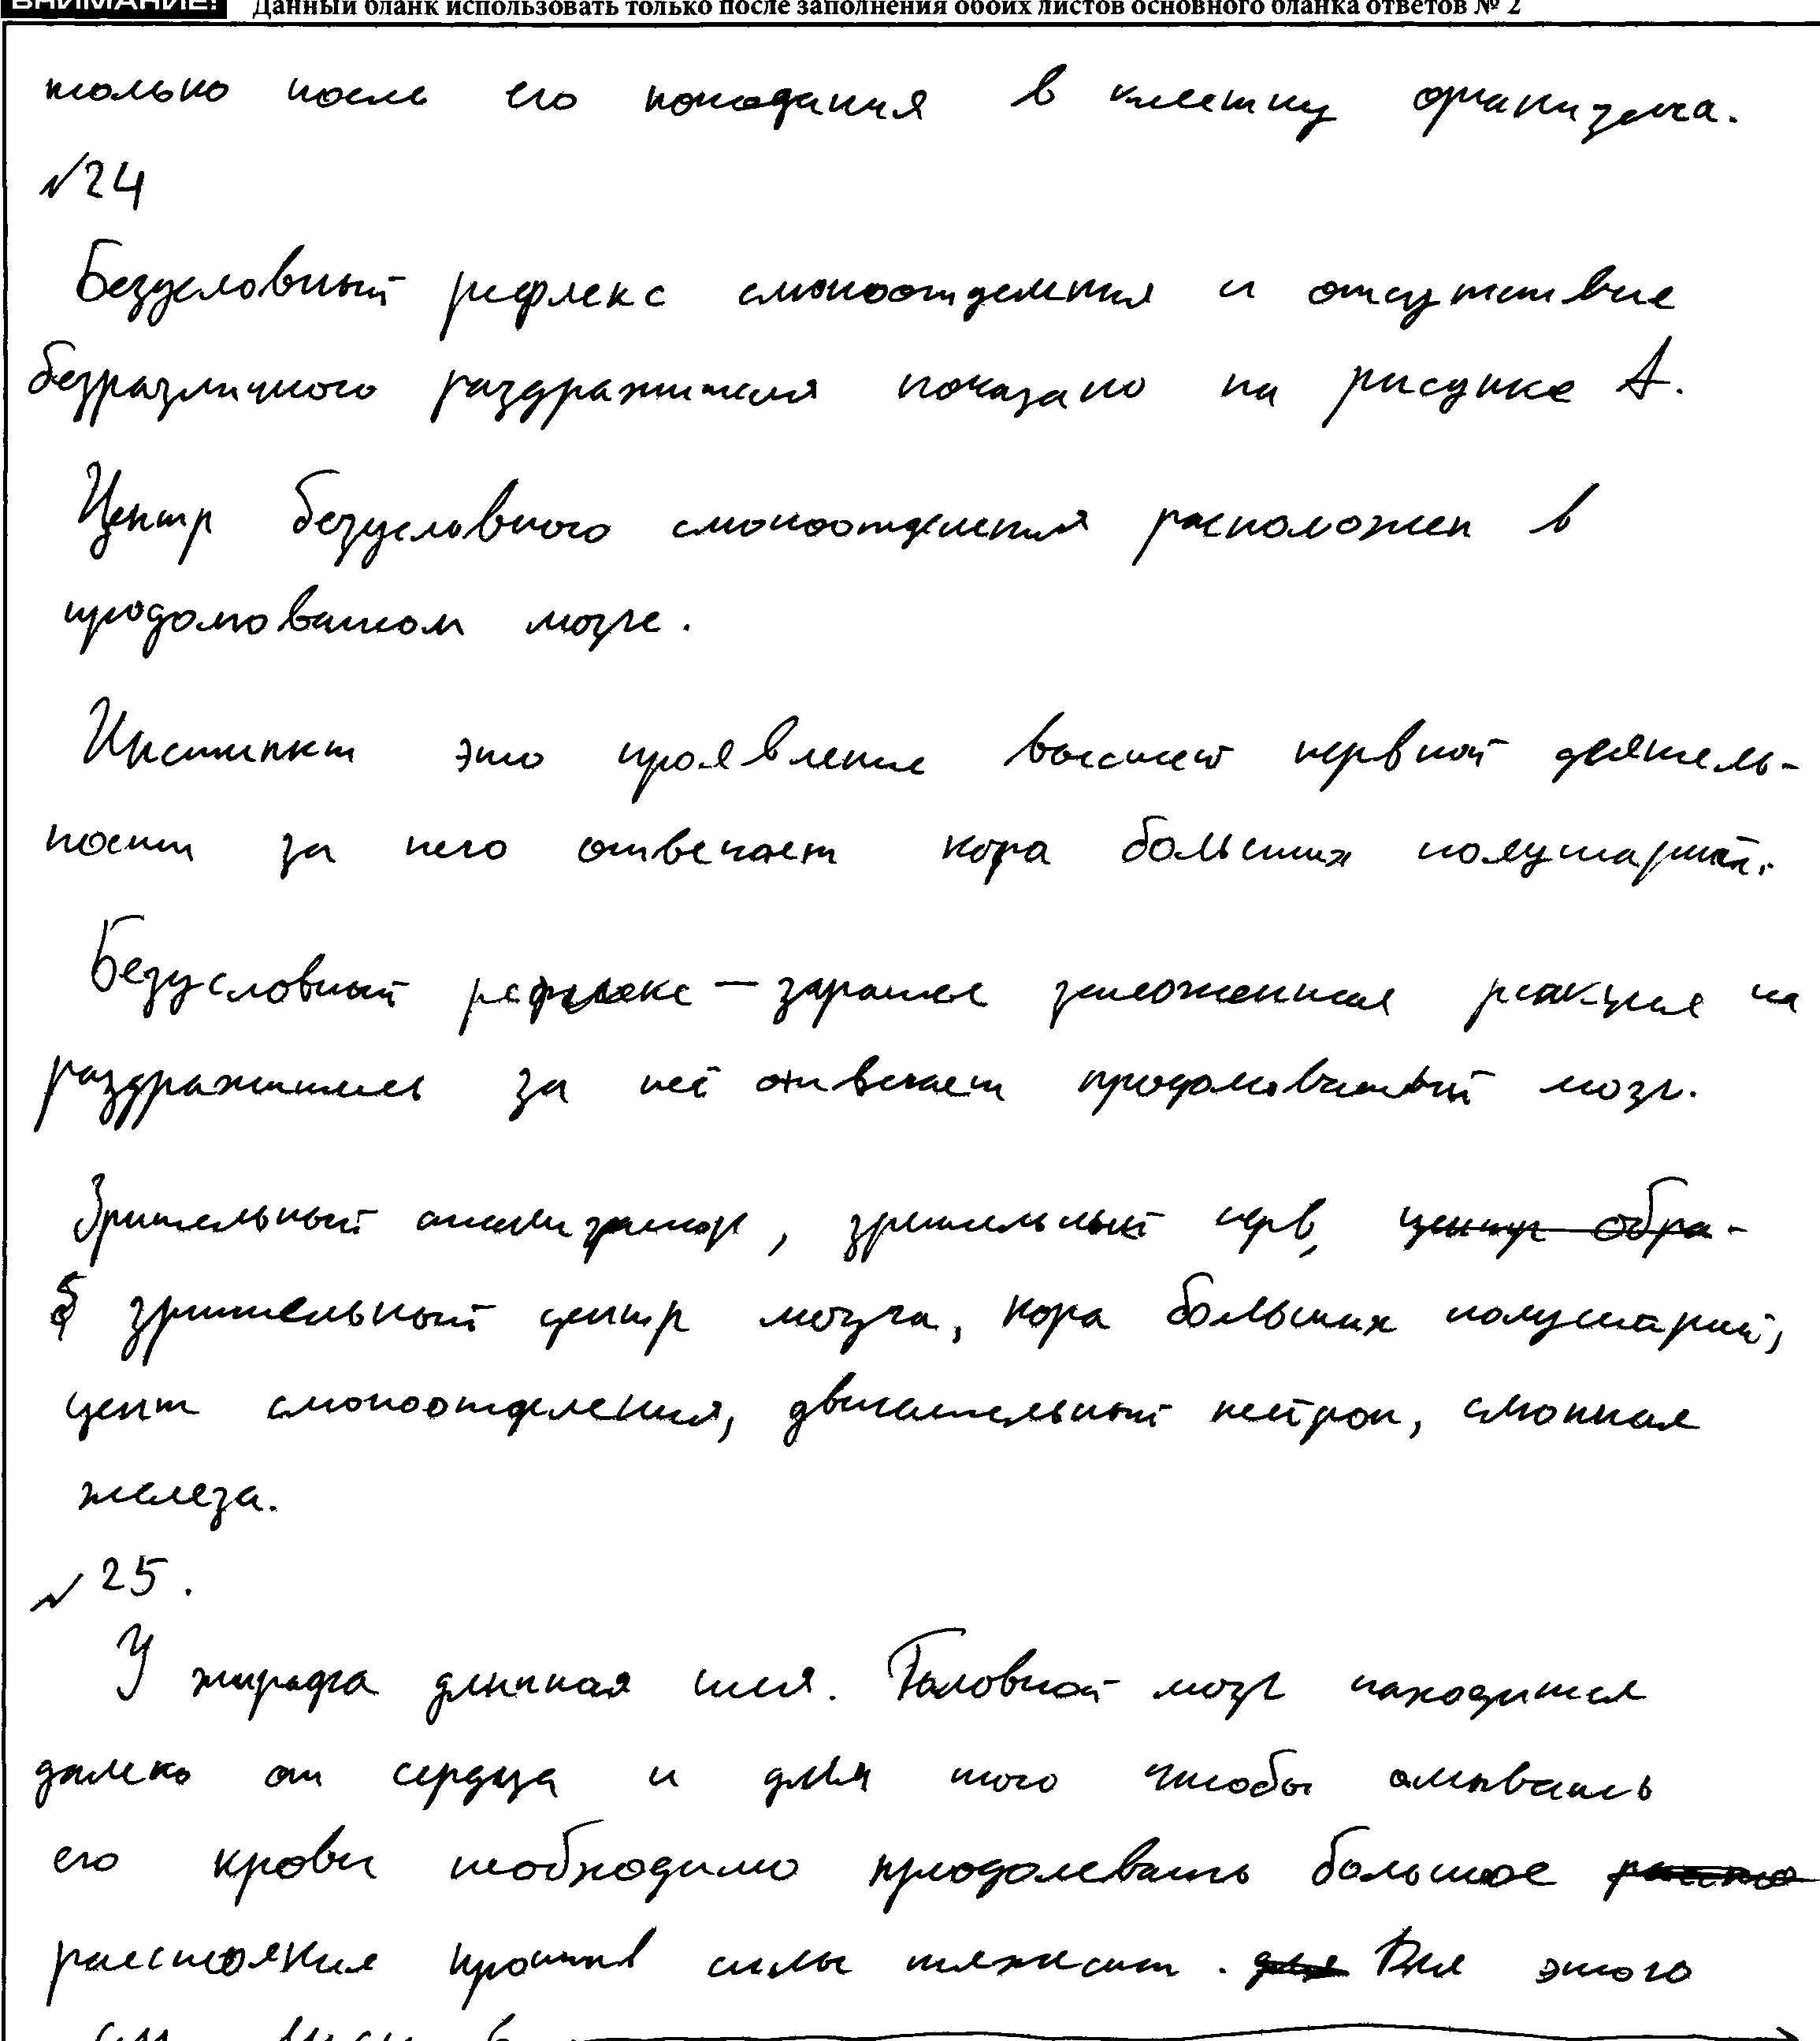 ВНИМАНИЕ! Данный бланк использовать только после заполнения обоих листов основного бланка ответов № 2
только после его попадания в клетку организма.
№24
Безусловный рефлекс слюноотделения и отсутствие
безразличного раздражителя показано на рисунке А.
Центр безусловного слюноотделения расположен в
продолговатом мозге.
Инстинкт это проявление высшей нервной деятель-
ности за него отвечает кора больших полушарий.
Безусловный рефлекс — заранее заложенная реакция на
раздражитель за неё отвечает продолговатый мозг.
Зрительный анализатор, зрительный нерв, центр обра-
зрительный центр мозга, кора больших полушарий,
цент слюноотделения, двигательный нейрон, слюнная
железа.
№25.
У жирафа длинная шея. Головной мозг находится
далеко от сердца и для того чтобы омывать
его крови необходимо преодолевать большое
расстояние против силы тяжести. Для этого